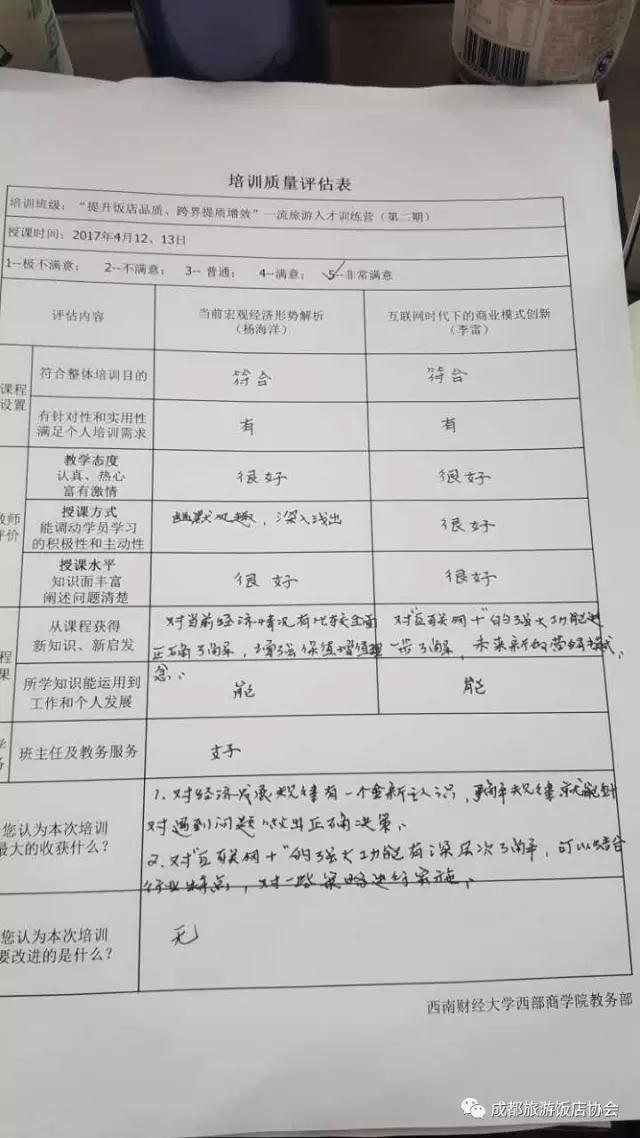 培训质量评估表
培训班级：“提升饭店品质、跨界提质增效”一流旅游人才训练营（第二期）
授课时间：2017年4月12、13日
1--极不满意； 2--不满意； 3-- 普通； 4--满意； 5--非常满意
评估内容
当前宏观经济形势解析
（杨海洋）
互联网时代下的商业模式创新
（李雷）
课程
设置
符合整体培训目的
符合
符合
有针对性和实用性
满足个人培训需求
有
有
教师
评价
教学态度
认真、热心
富有激情
很好
很好
授课方式
能调动学员学习
的积极性和主动性
幽默风趣，深入浅出
很好
授课水平
知识面丰富
阐述问题清楚
很好
很好
程
果
从课程获得
新知识、新启发
对当前经济情况有比较全面
正确了解，增强保值增值理
念。
对“互联网+”的强大功能进
一步了解，未来新的营销模式
所学知识能运用到
工作和个人发展
能
能
班主任及教务服务
好
您认为本次培训
最大的收获什么？
1、对经济发展规律有一个全新认识，掌握规律就能针
对遇到问题做出正确决策。
2、对“互联网+”的强大功能有深层次了解，可以结合
行业特点，对一些策略进行实施。
您认为本次培训
要改进的是什么？
无
西南财经大学西部商学院教务部
成都旅游饭店协会